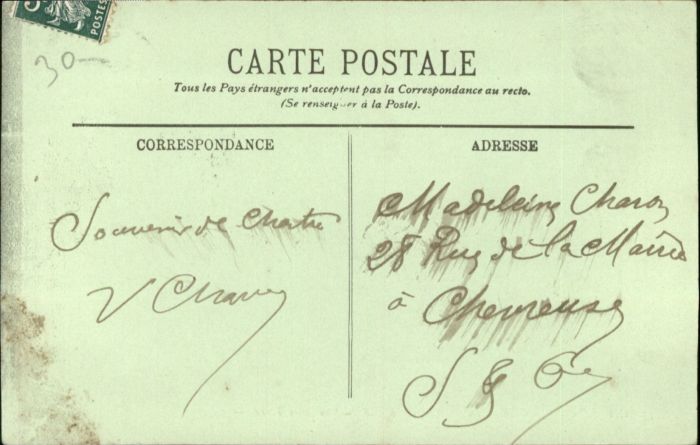 POSTES
30
CARTE POSTALE
Tous les Pays étrangers n'acceptent pas la Correspondance au recto.
(Se renseigner à la Poste).
CORRESPONDANCE
ADRESSE
Souvenir de Chartres
V Charon
Madeleine Charon
28 Rue de la Mairie
à Chevreuse
S & O